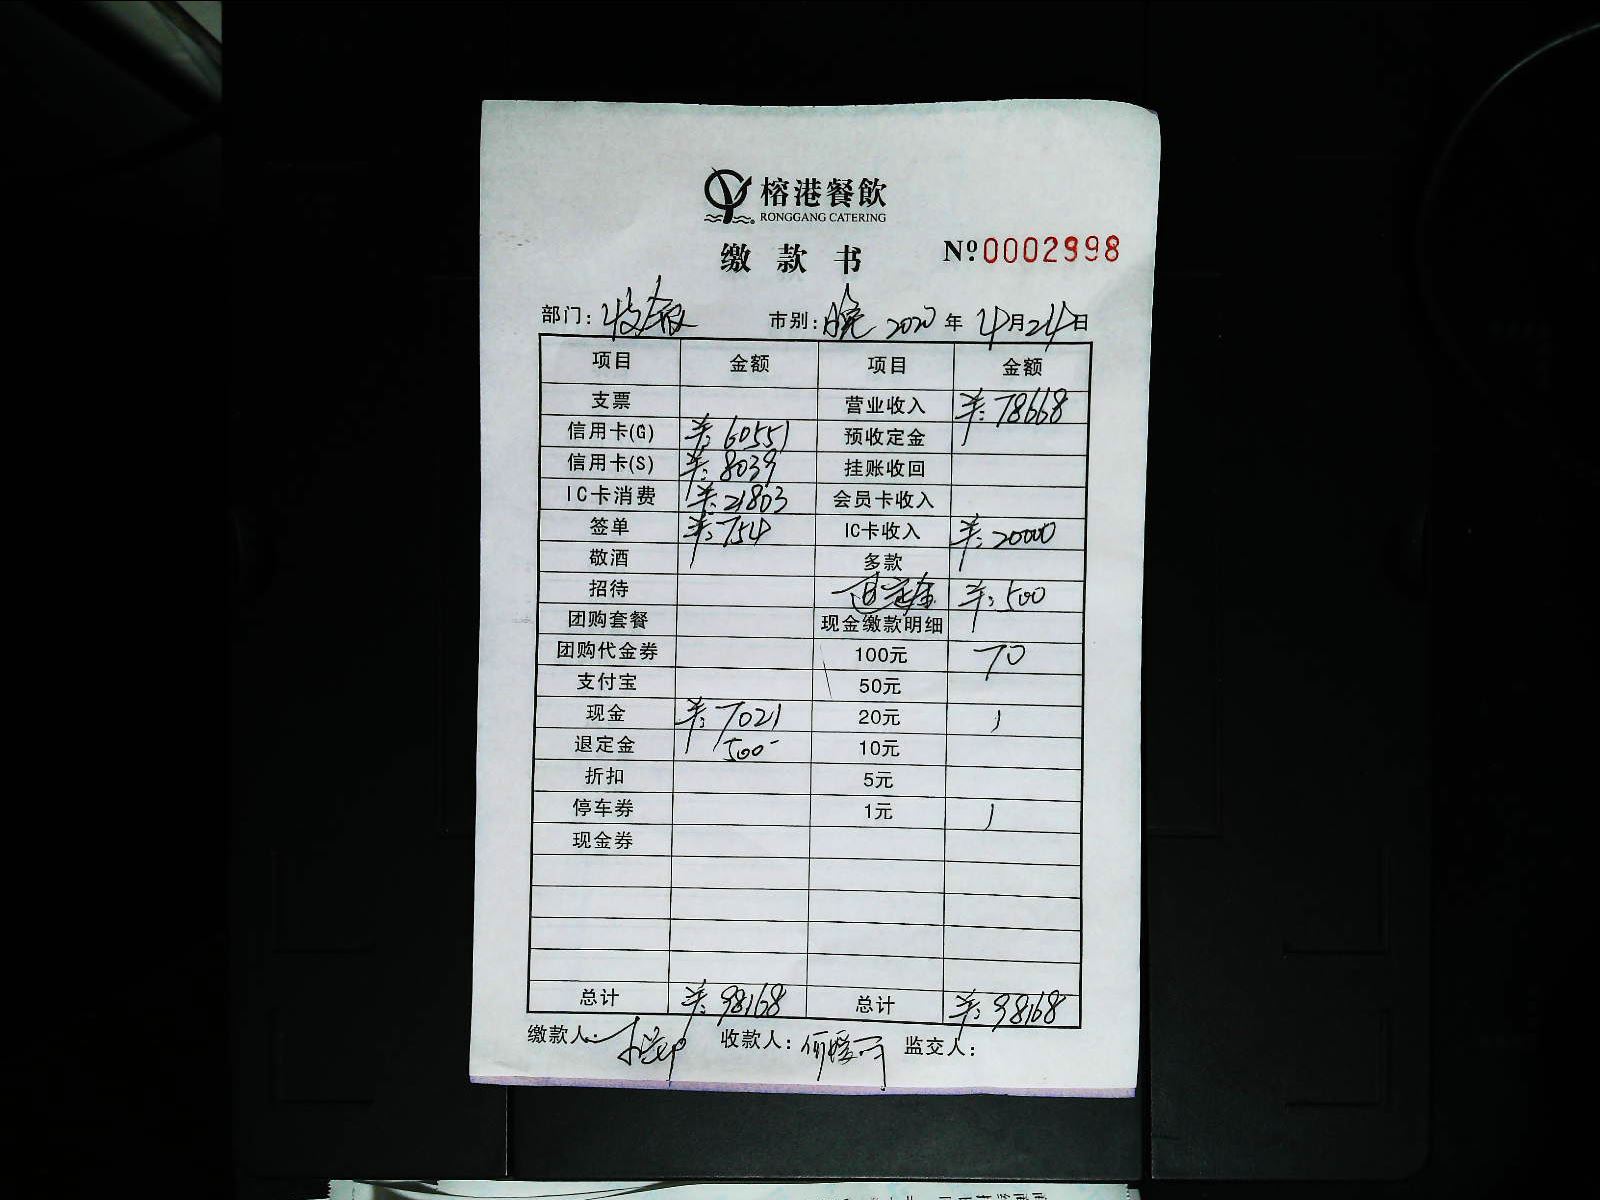 榕港餐飲
RONGGANG CATERING
缴款书 Nº 0002998
部门: 收银 市别: 晚 2020 年 4 月 24 日
项目 金额 项目 金额
支票 营业收入 ¥:78668
信用卡(G) ¥:60551 预收定金
信用卡(S) ¥:8039 挂账收回
IC卡消费 ¥:21803 会员卡收入
签单 ¥:754 IC卡收入 ¥:20000
敬酒 多款
招待 退定金 ¥:500
团购套餐 现金缴款明细
团购代金券 100元 70
支付宝 50元
现金 ¥:7021 20元 1
退定金 500- 10元
折扣 5元
停车券 1元 1
现金券
总计 ¥:98168 总计 ¥:98168
缴款人: 收款人: 何嫒可 监交人: